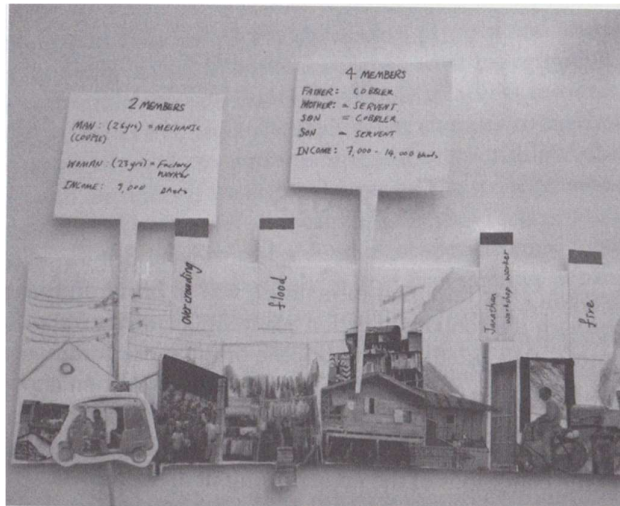 2 MEMBERS
MAN: (26yrs) = MECHANIC
(COUPLE)
WOMAN: (23yrs) = Factory
worker
INCOME: 9,000 bhats
4 MEMBERS
FATHER: COBBLER
MOTHER: = SERVENT
SON = COBBLER
SON = SERVENT
INCOME: 7,000 - 14,000 bhats
overcrowding
flood
Jonathan
workshop worker
fire